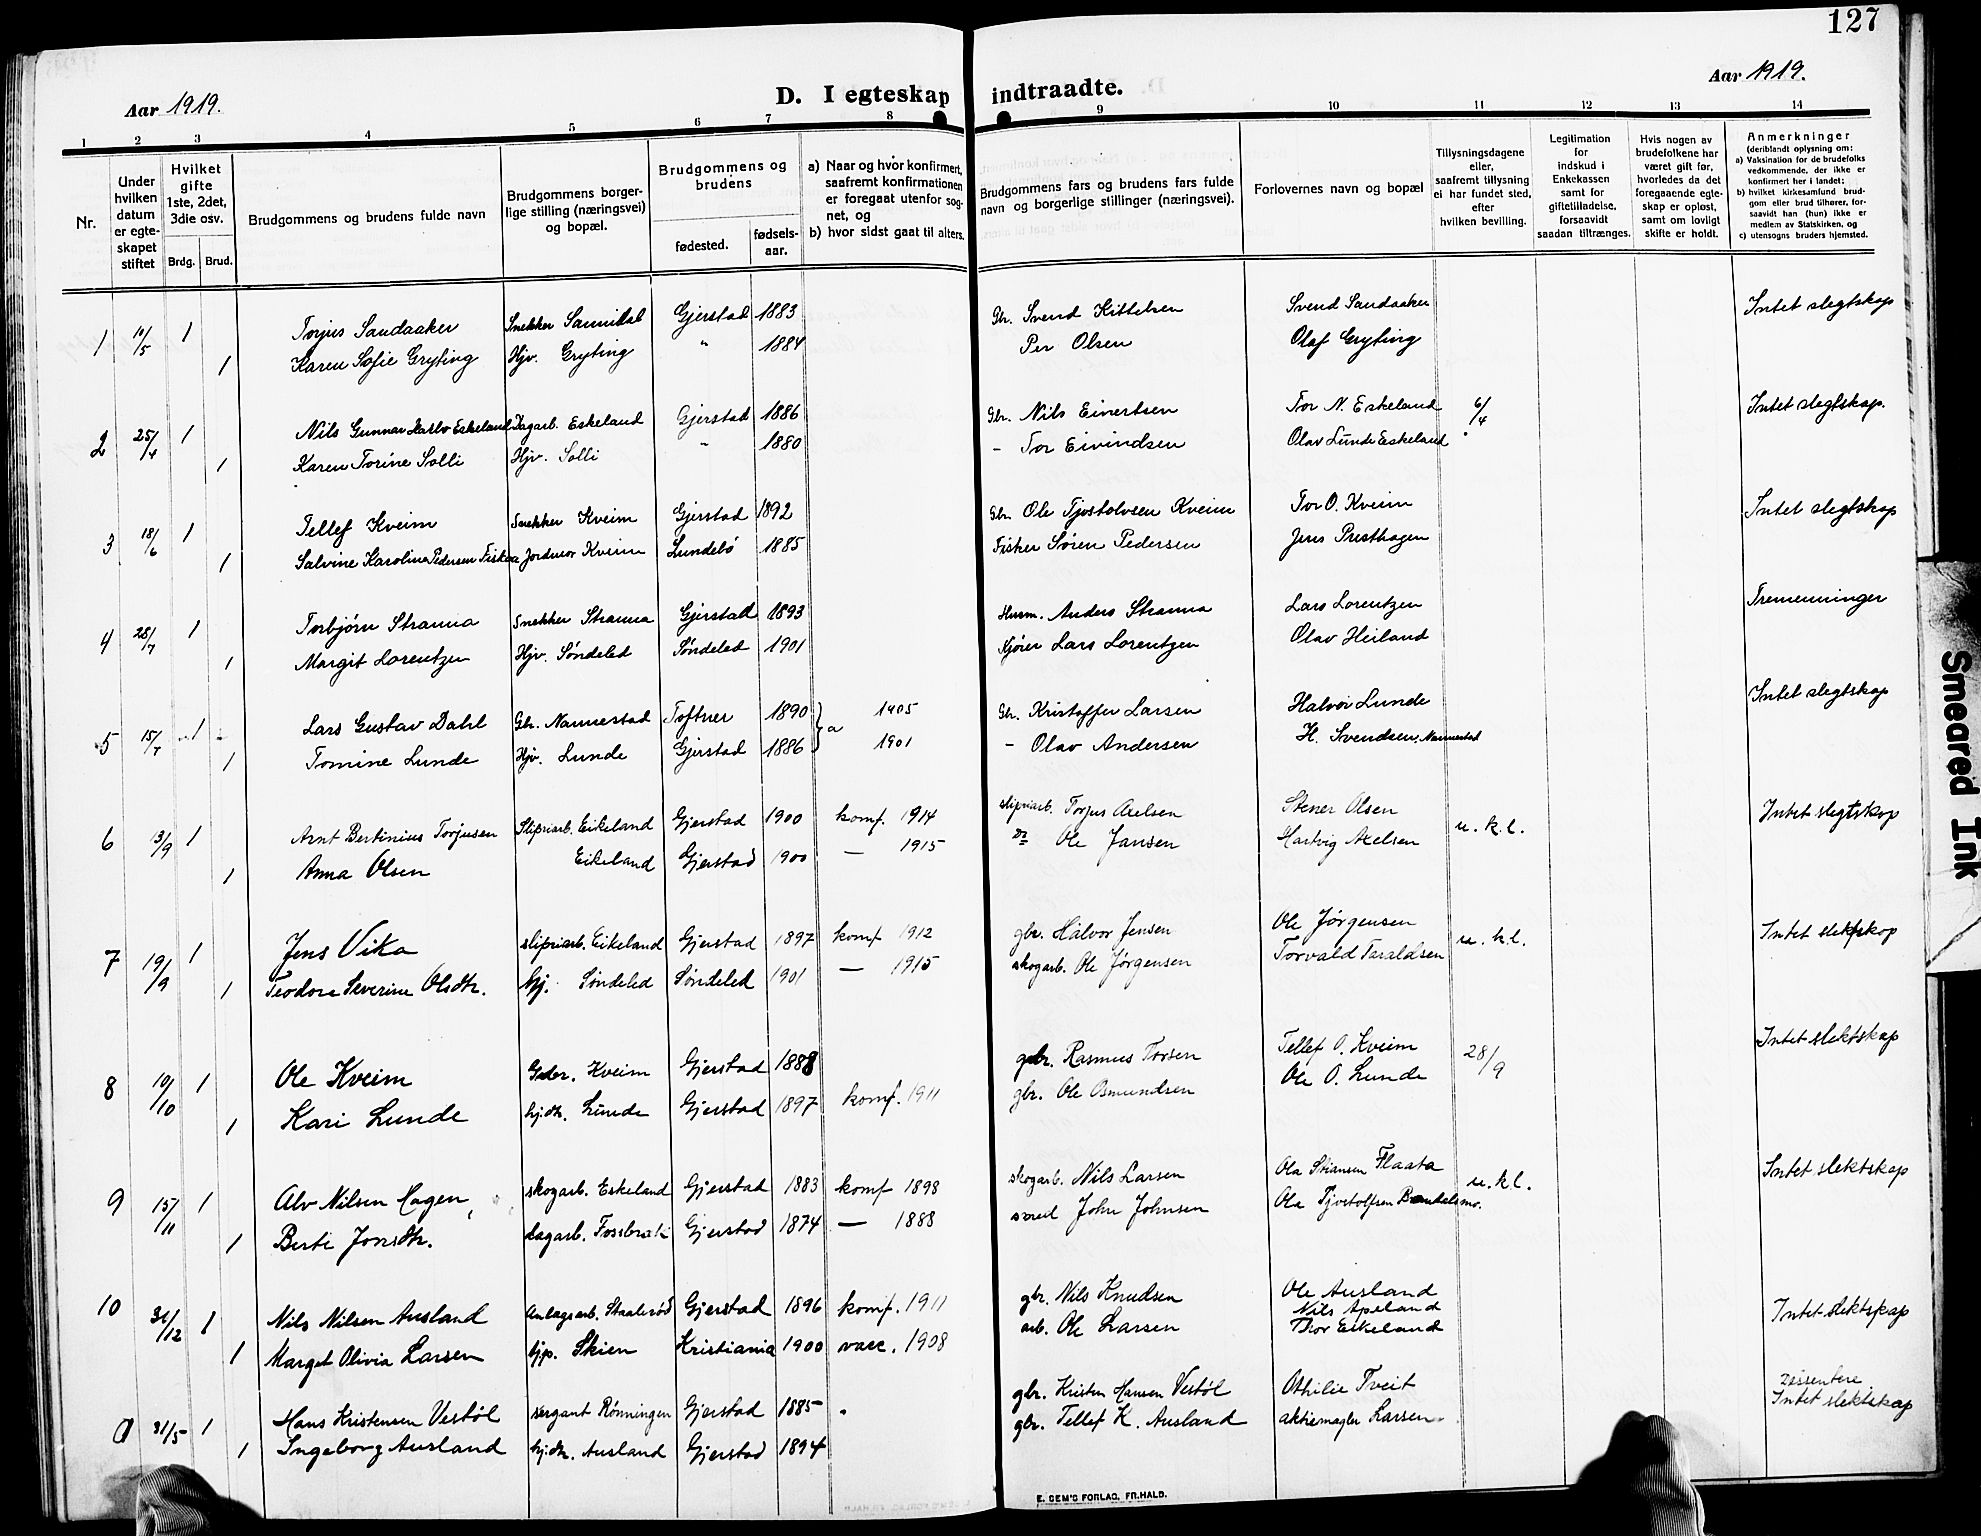 127
Aar 1919.
D. I egteskap indtraadte.
Aar 1919.
1 2 3 4 5 6 7 8 9 10 11 12 13 14
Nr.
Under hvilken datum er egteskapet stiftet
Hvilket gifte 1ste, 2det, 3die osv.
Brdg. Brud.
Brudgommens og brudens fulde navn
Brudgommens borgerlige stilling (næringsvei) og bopæl.
Brudgommens og brudens
fødested. fødselsaar.
a) Naar og hvor konfirmert, saafremt konfirmationen er foregaat utenfor sognet, og
b) hvor sidst gaat til alters.
Brudgommens fars og brudens fars fulde navn og borgerlige stillinger (næringsvei).
Forlovernes navn og bopæl
Tillysningsdagene eller, saafremt tillysning ei har fundet sted, efter hvilken bevilling.
Legitimation for indskud i Enkekassen samt for giftetilladelse, forsaavidt saadan tiltrænges.
Hvis nogen av brudefolkene har været gift før, hvorledes da det foregaaende egteskap er opløst, samt om lovligt skifte er holdt.
Anmerkninger
(deriblandt oplysning om:
a) Vaksination for de brudefolks vedkommende, der ikke er konfirmert her i landet;
b) hvilket kirkesamfund brudgom eller brud tilhører, forsaavidt han (hun) ikke er medlem av Statskirken, og
c) utensogns bruders hjemsted.
1 10/5 1 Torjus Sandaaker Snekker Sannidal Gjerstad 1883 Gbr. Svend Kittelsen Svend Sandaaker Intet slegtskap
1 Karen Sofie Gryting Hjv. Gryting " 1884 Per Olsen Olaf Gryting
2 25/4 1 Nils Gunnar Karlo Eskeland Dagarb. Eskeland Gjerstad 1886 Gbr. Nils Einertsen Tor N. Eskeland 6/4 Intet slegtskap.
1 Karen Torine Solli Hjv. Solli " 1880 - Tor Eivindsen Olav Lunde Eskeland
3 18/6 1 Tellef Kveim Snekker Kveim Gjerstad 1892 Gbr. Ole Tjostolvsen Kveim Tor O. Kveim Intet slegtskap
1 Salvine Karoline Pedersen Jordmor Kveim 1885 Fisker Søren Pedersen Jens Presthagen
4 28/7 1 Torbjørn Stranna Snekker Stranna Gjerstad 1893 Husm. Anders Stranna Lars Lorentzen Tremenninger
1 Margit Lorentzen Hjv. Søndeled Søndeled 1901 Kjører Lars Lorentzen Olav Heiland
5 15/7 1 Lars Gustav Dahl Gbr. Nannestad 1890 a 1905 Gbr. Kristoffer Larsen Halvor Lunde Intet slegtskap
1 Tomine Lunde Hjv. Lunde Gjerstad 1886 1901 - Olav Andersen H. Svendsen, Nannestad
6 13/9 1 Arnt Bertinius Torjusen Slipriarb. Eikeland Gjerstad 1900 konf. 1914 slipriarb. Torjus Axelsen Stener Olsen u.k.l. Intet slegtskap
1 Anna Olsen Eikeland Gjerstad 1900 — 1915 Ole Jansen Hartvig Axelsen
7 19/9 1 Jens Vika slipriarb. Eikeland Gjerstad 1897 konf 1912 gbr. Halvor Jensen Ole Jørgensen u.k.l. Intet slektskap
1 Teodora Severine Olsdtr. hj. Søndeled Søndeled 1901 — 1915 skogarb. Ole Jørgensen Torvald Taraldsen
8 10/10 1 Ole Kveim Gbr. Kveim Gjerstad 1888 gbr. Rasmus Torsen Tellef O. Kveim 28/9 Intet slektskap
1 Kari Lunde hj.dtr. Lunde Gjerstad 1897 konf. 1911 gbr. Ole Osmundsen Ole O. Lunde
9 15/11 1 Alv Nilsen Hagen, skogarb. Eskeland Gjerstad 1883 konf 1898 skogarb. Nils Larsen Ola Stiansen Flaata u.k.l. Intet slektskap
1 Berte Jonsdtr. dagarb. Fossbrekk Gjerstad 1874 — 1888 John Johnsen Ola Tjostolfsen
10 31/12 1 Nils Nilsen Ausland Anlagsarb. Staalerød Gjerstad 1896 konf. 1911 gbr. Nils Knudsen Ole Ausland Intet slektskap
Nils Apeland
1 Marget Olivia Larsen hjp. Skien Kristiania 1900 vacc. 1908 arb. Ole Larsen Thor Eikeland
a 31/5 1 Hans Kristensen Vestøl sergant Rønningen Gjerstad 1885 gbr. Kristen Hansen Vestøl Othilie Tveit Dissentere
Intet slektskap
1 Ingeborg Ausland hj.dtr. Ausland Gjerstad 1894 gbr. Tellef K. Ausland aktiemagler Larsen
E. SEM'S FORLAG, FR.HALD.
Smeared Ink